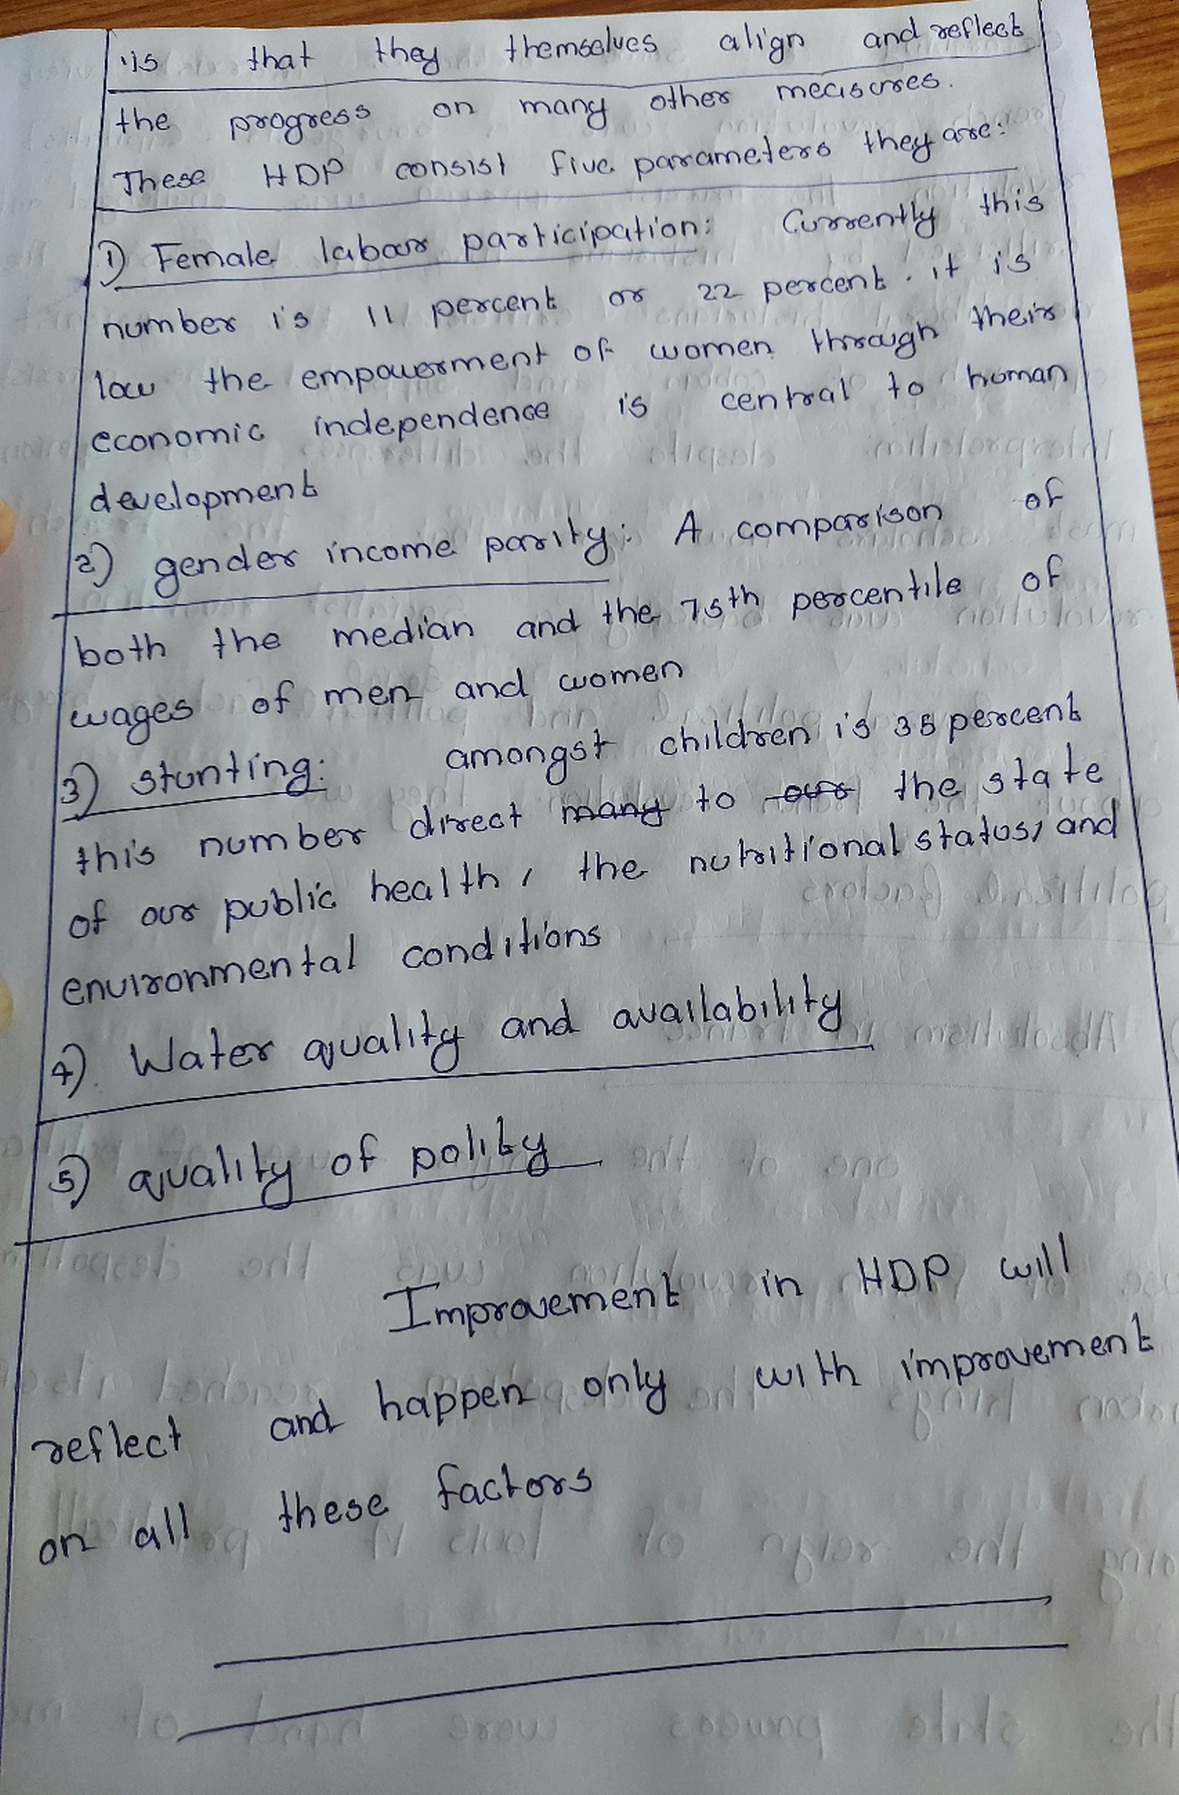 is that they themselves align and reflect
the progress on many other measures.
These HDP consist five parameters they are:
1) Female labour participation: Currently this
number is 11 percent or 22 percent. it is
low the empowerment of women through their
economic independence is central to human
development
2) gender income parity: A comparison of
both the median and the 75th percentile of
wages of men and women
3) stunting: amongst children is 35 percent
this number direct many to our the state
of our public health, the nutritional status, and
environmental conditions
4). Water quality and availability
5) quality of polity
Improvement in HDP will
reflect and happen only with improvement
on all these factors